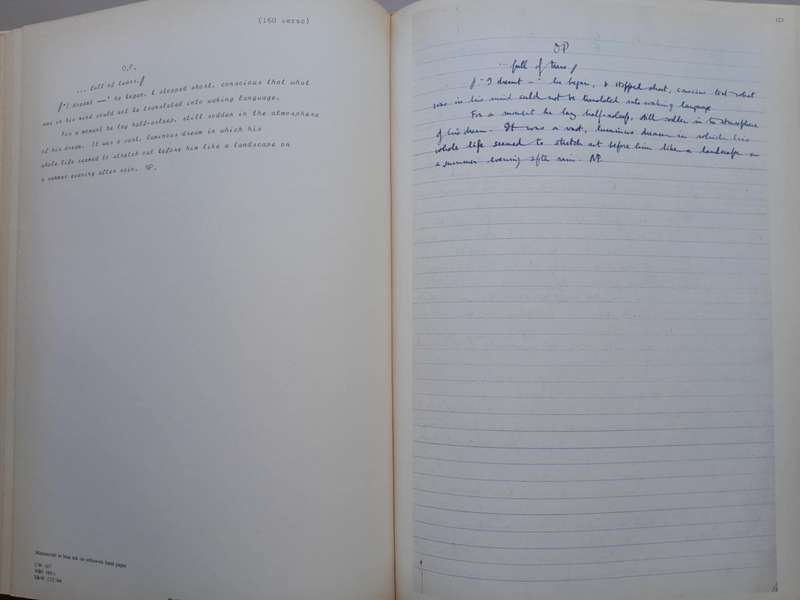 (160 verso)
O.P.
... full of tears.∫
∫"I dreamt —" he began, & stopped short, conscious that what
was in his mind could not be translated into waking language.
For a moment he lay half-asleep, still sodden in the atmosphere
of his dream. It was a vast, luminous dream in which his
whole life seemed to stretch out before him like a landscape on
a summer evening after rain. NP.
Manuscript in blue ink on yellowish lined paper
O.P.
... full of tears∫
∫"I dreamt —" he began, & stopped short, conscious that what
was in his mind could not be translated into waking language
For a moment he lay half-asleep, still sodden in the atmosphere
of his dream. It was a vast, luminous dream in which his
whole life seemed to stretch out before him like a landscape on
a summer evening after rain. NP.